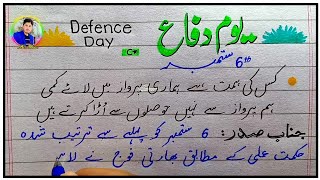 Defence Day
یوم دفاع
6th ستمبر
کس کی ہمت ہے ہماری پرواز میں لائے کمی
ہم پرواز سے نہیں حوصلوں سے اُڑا کرتے ہیں
جناب صدر: 6 ستمبر کو پہلے سے ترتیب شدہ
حکمت عملی کے مطابق بھارتی فوج نے لاہور